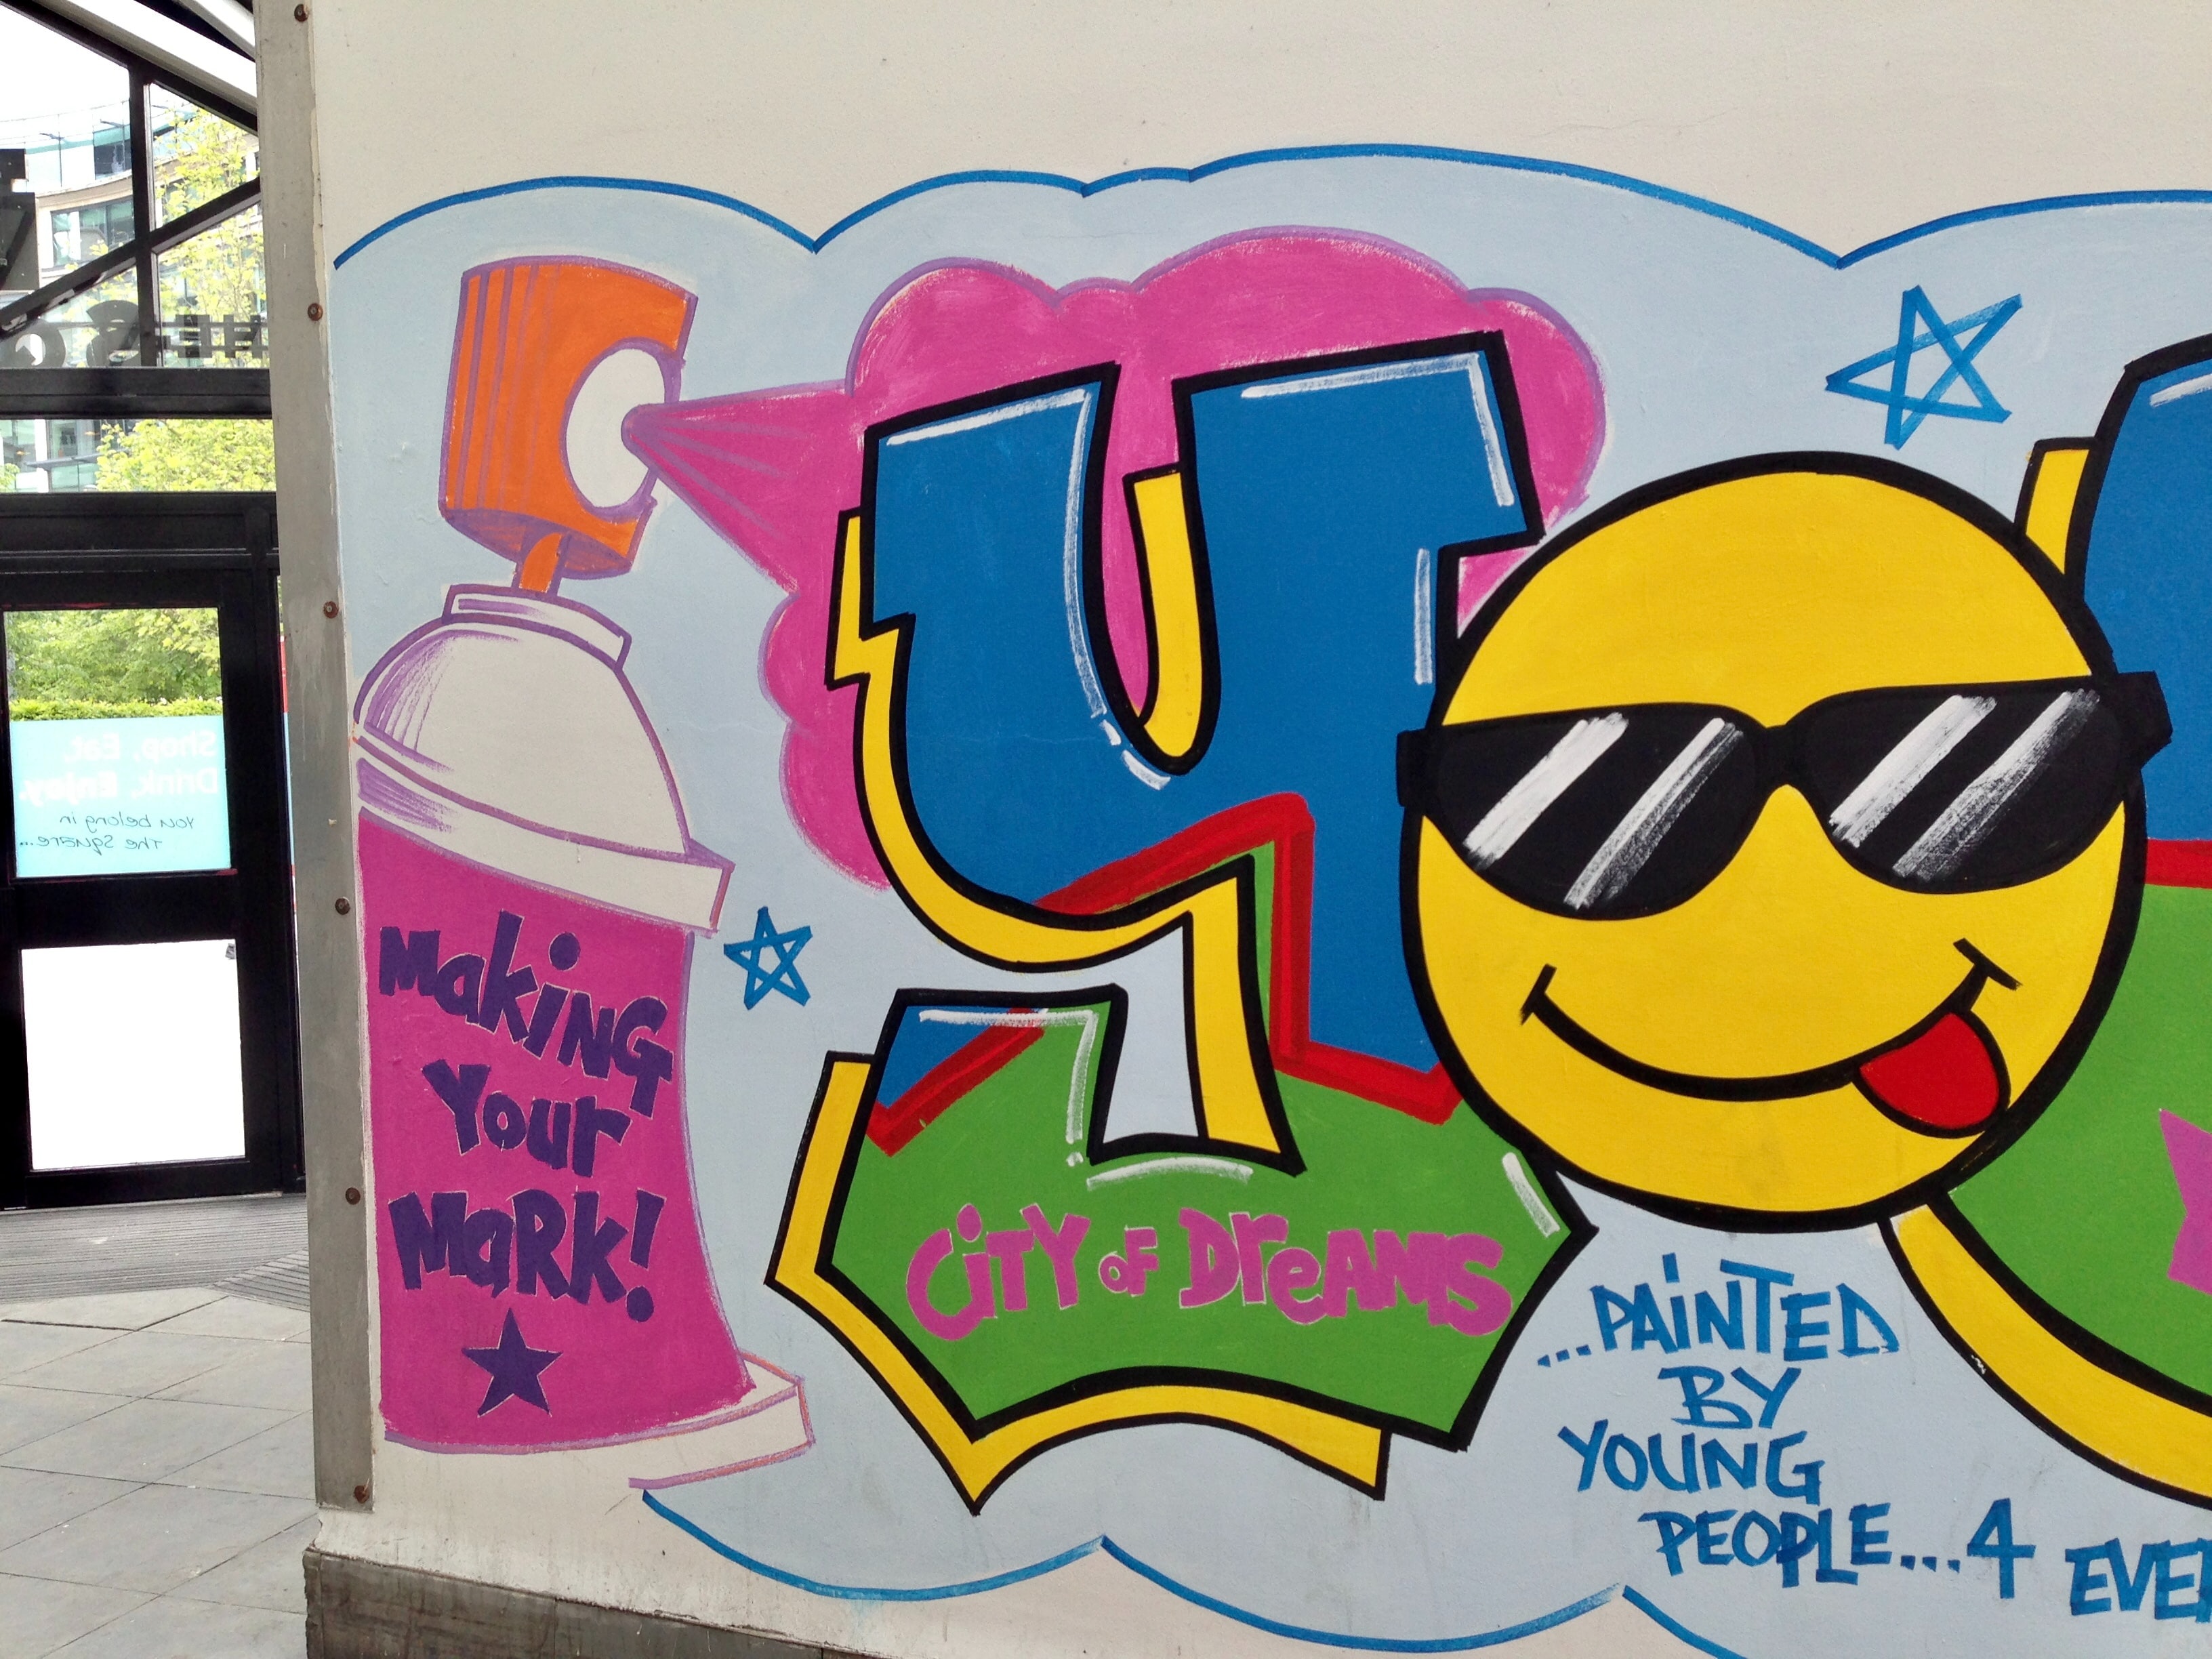 Shop. Eat.
Drink. Enjoy.
You belong in
The Square...
Making
Your
Mark!
CiTY oF DreAMS
...PAiNTED
BY
YOUNG
PEOPLE....4